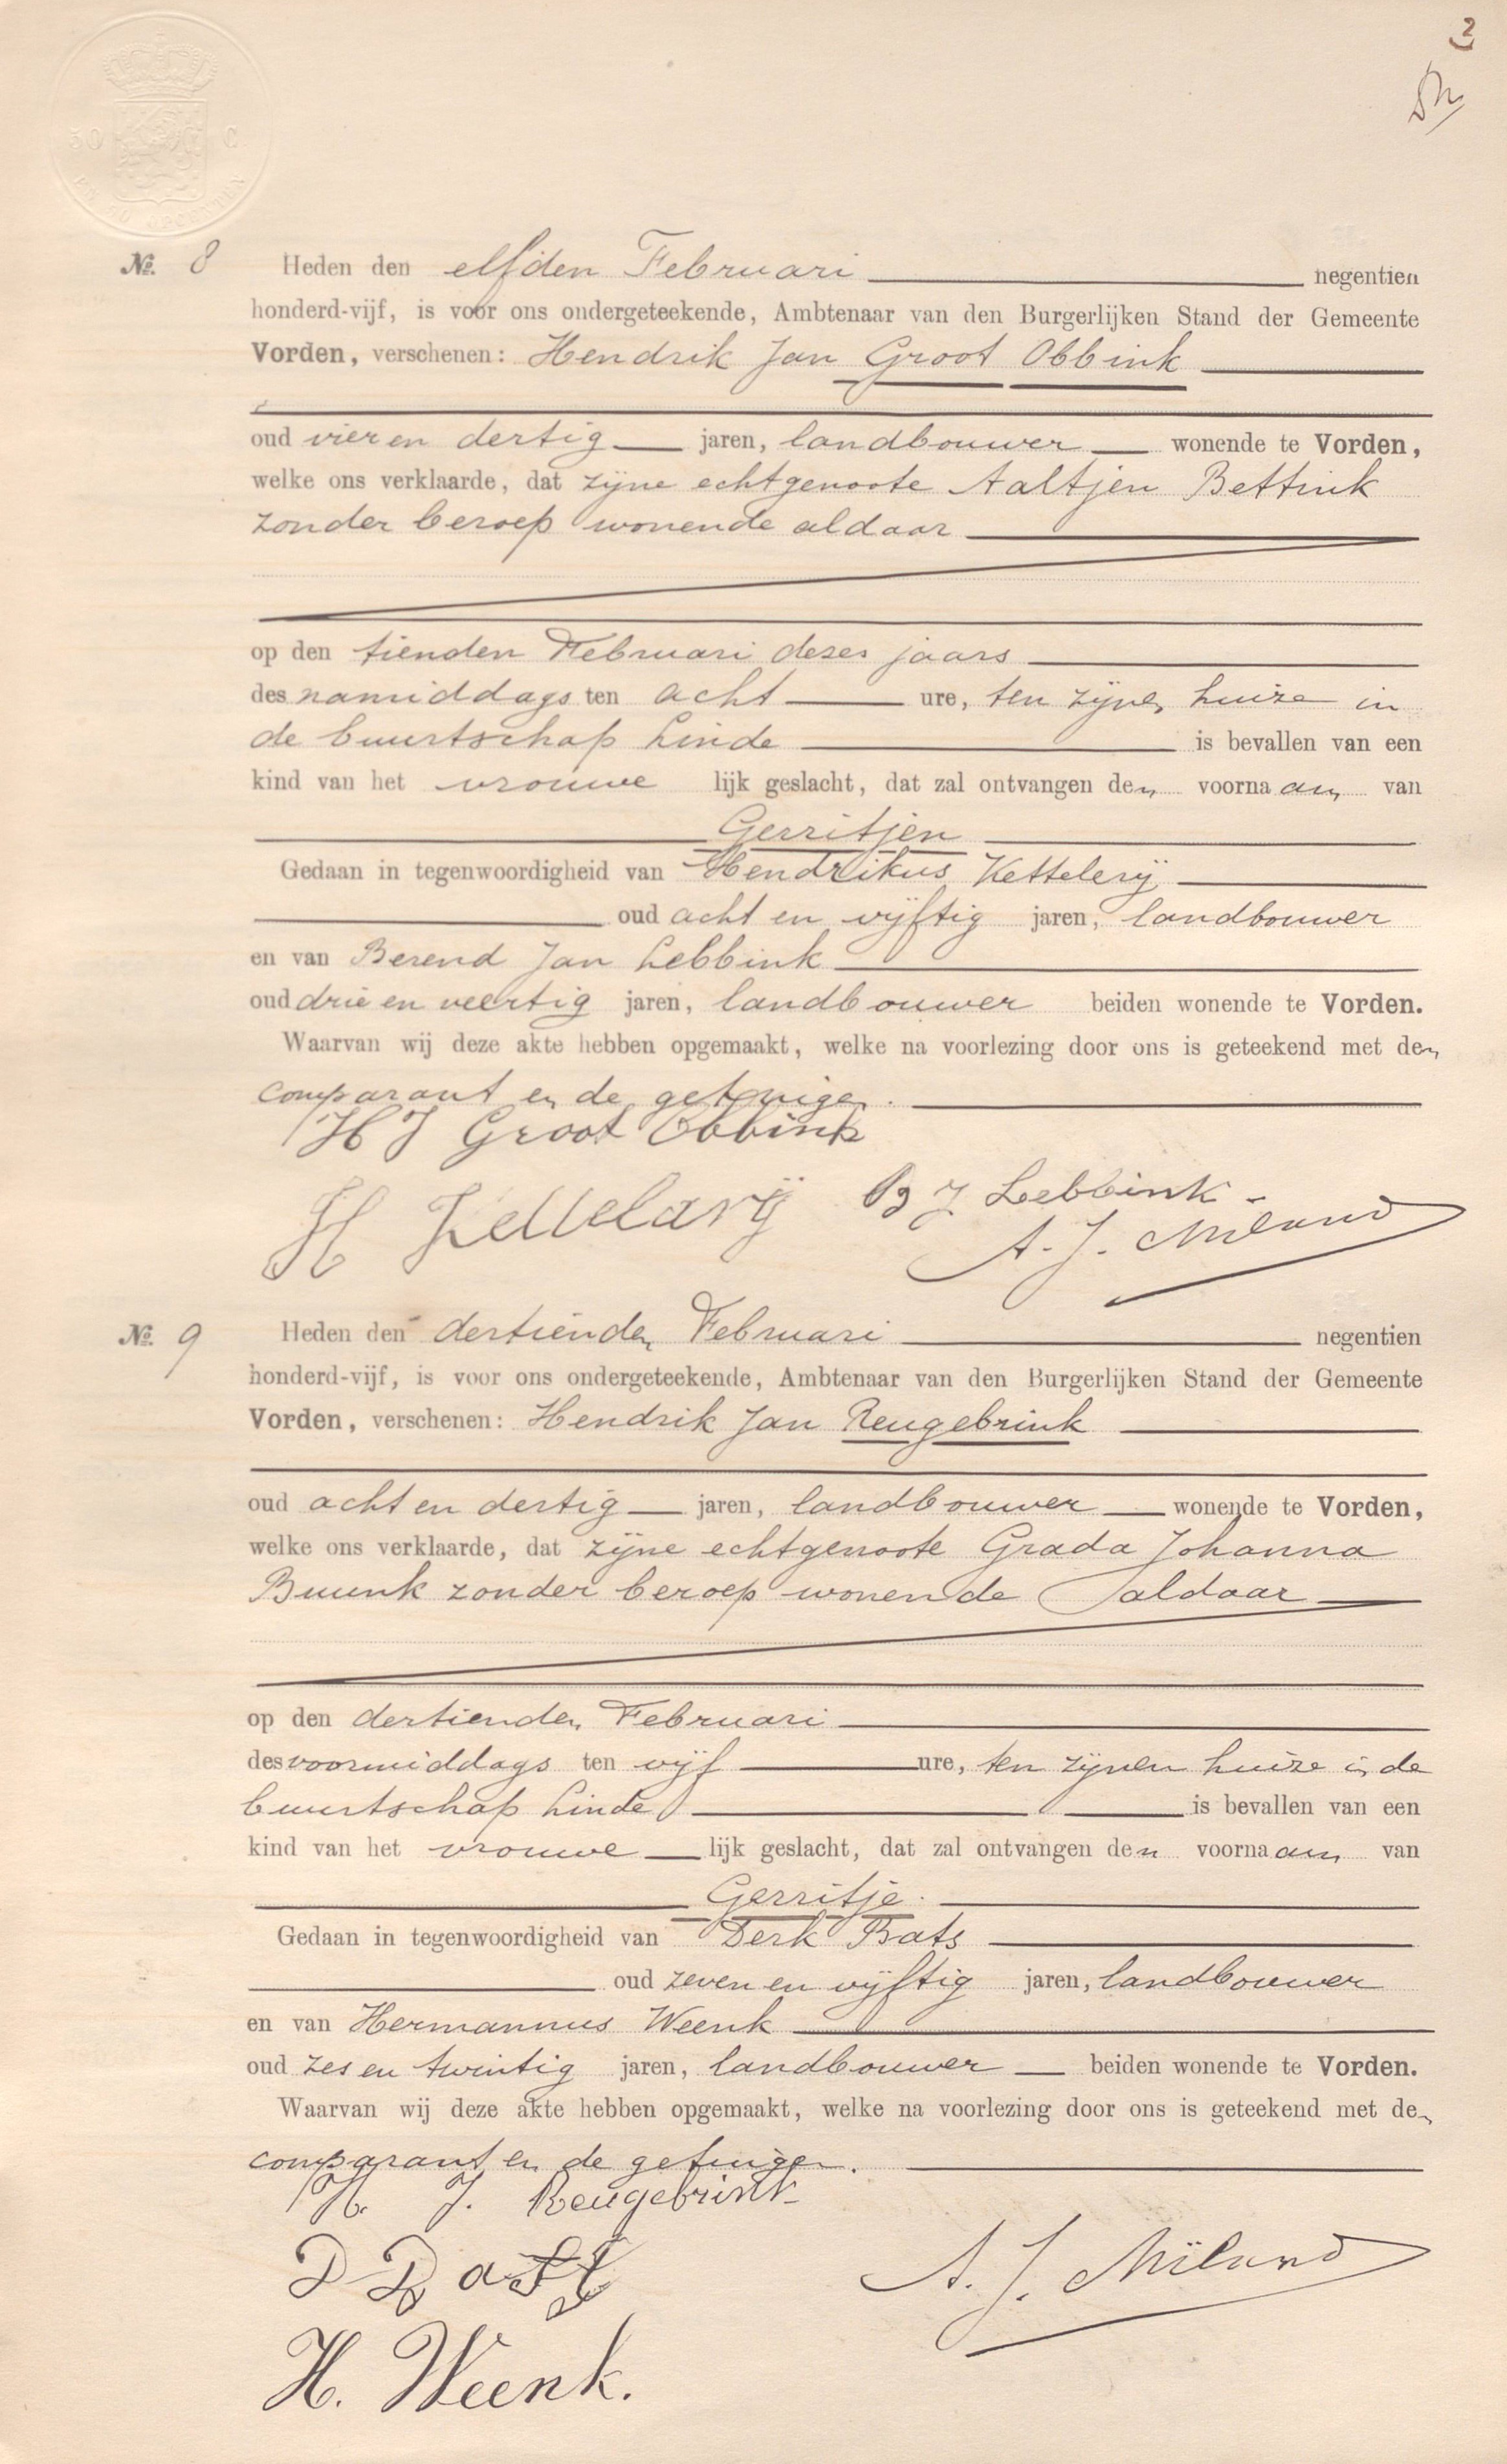 3
50 C
No. 8 Heden den elfden Februari negentien
honderd-vijf, is voor ons ondergeteekende, Ambtenaar van den Burgerlijken Stand der Gemeente
Vorden, verschenen: Hendrik Jan Groot Obbink
oud vier en dertig jaren, landbouwer wonende te Vorden,
welke ons verklaarde, dat zijne echtgenoote Aaltjen Bettink
zonder beroep wonende aldaar
op den tienden Februari dezes jaars
des namiddags ten acht ure, ten zijnen huize in
de buurtschap Linde is bevallen van een
kind van het vrouwe lijk geslacht, dat zal ontvangen den voornaam van
Gerritjen
Gedaan in tegenwoordigheid van Hendrikus Kettelerij
oud acht en vijftig jaren, landbouwer
en van Berend Jan Lebbink
oud drie en veertig jaren, landbouwer beiden wonende te Vorden.
Waarvan wij deze akte hebben opgemaakt, welke na voorlezing door ons is geteekend met den
comparant en de getuigen.
H J Groot Obbink
H Kettelarij B J Lebbink
A. J. Miland
No. 9 Heden den dertienden Februari negentien
honderd-vijf, is voor ons ondergeteekende, Ambtenaar van den Burgerlijken Stand der Gemeente
Vorden, verschenen: Hendrik Jan Reugebrink
oud acht en dertig jaren, landbouwer wonende te Vorden,
welke ons verklaarde, dat zijne echtgenoote Grada Johanna
Buunk zonder beroep wonende aldaar
op den dertienden Februari
des voormiddags ten vijf ure, ten zijnen huize in de
buurtschap Linde is bevallen van een
kind van het vrouwe lijk geslacht, dat zal ontvangen den voornaam van
Gerritje.
Gedaan in tegenwoordigheid van Derk Bats
oud zeven en vijftig jaren, landbouwer
en van Hermannus Weenk
oud zes en twintig jaren, landbouwer beiden wonende te Vorden.
Waarvan wij deze akte hebben opgemaakt, welke na voorlezing door ons is geteekend met den
comparant en de getuigen.
H. J. Reugebrink
D Bats
A. J. Miland
H. Weenk.